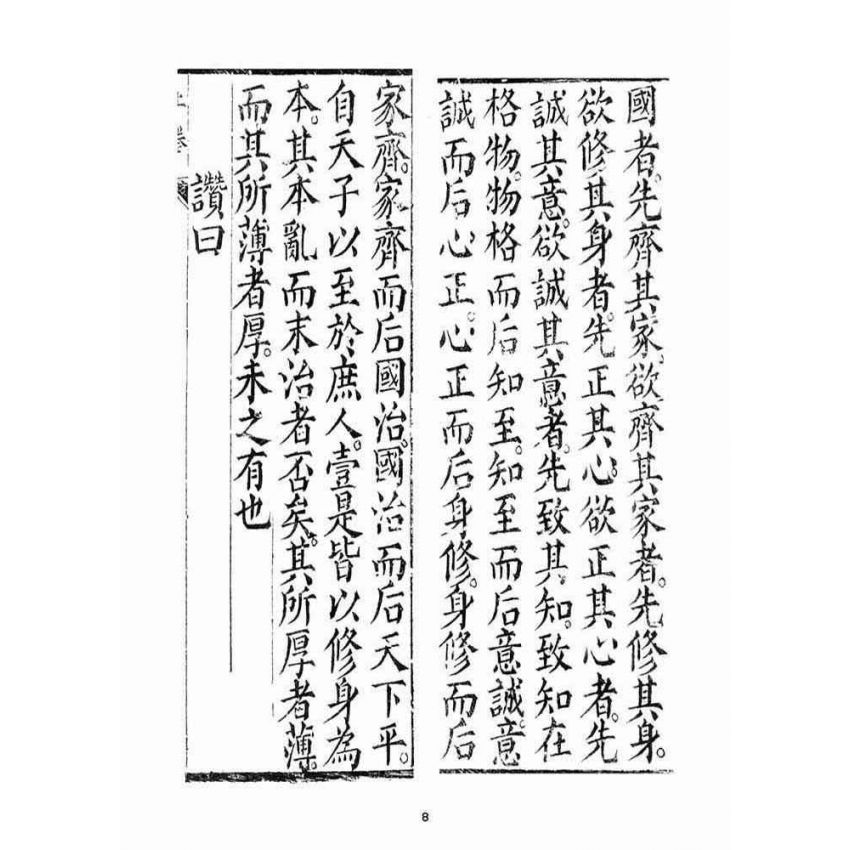 國者。先齊其家。欲齊其家者。先修其身。
欲修其身者。先正其心。欲正其心者。先
誠其意。欲誠其意者。先致其知。致知在
格物。物格而后知至。知至而后意誠。意
誠而后心正。心正而后身修。身修而后
家齊。家齊而后國治。國治而后天下平。
自天子以至於庶人。壹是皆以修身為
本。其本亂而末治者否矣。其所厚者薄。
而其所薄者厚。未之有也
讚曰
8